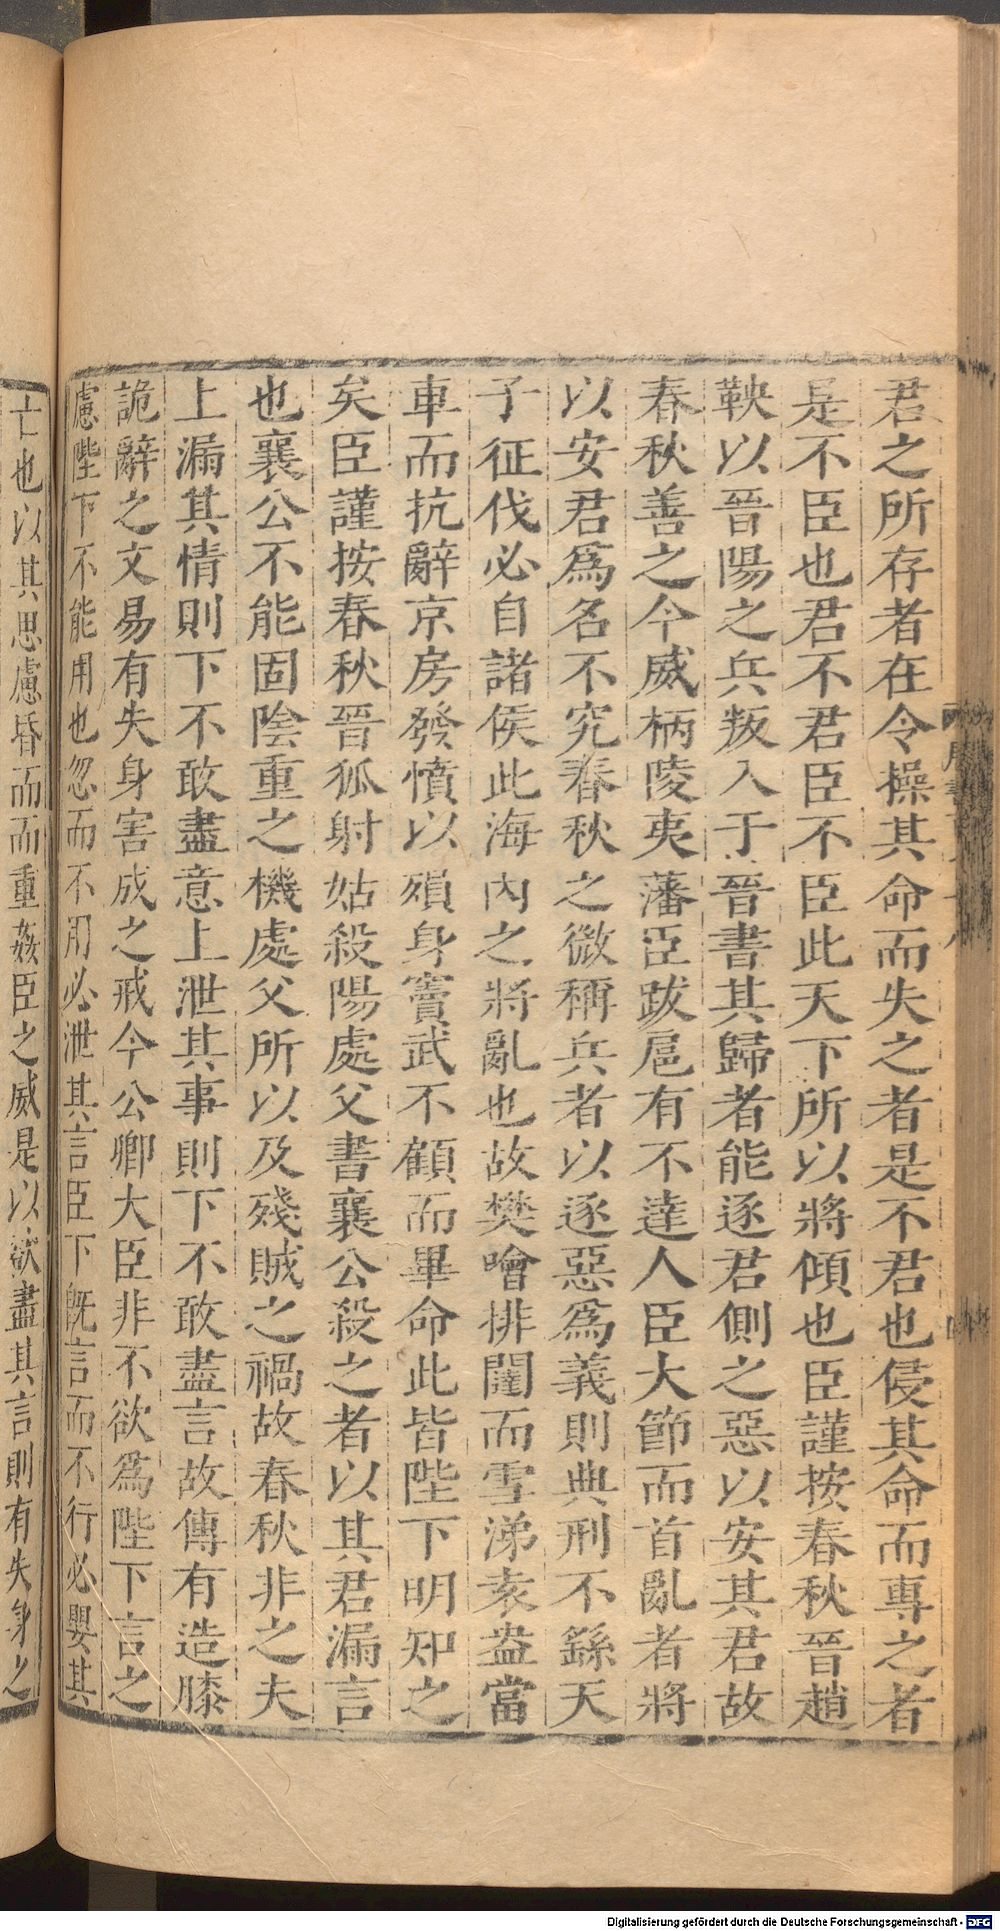 君之所存者在令操其命而失之者是不君也侵其命而專之者
是不臣也君不君臣不臣此天下所以將傾也臣謹按春秋晉趙
鞅以晉陽之兵叛入于晉書其歸者能逐君側之惡以安其君故
春秋善之今威柄陵夷藩臣跋扈有不達人臣大節而首亂者將
以安君爲名不究春秋之微稱兵者以逐惡爲義則典刑不繇天
子征伐必自諸侯此海內之將亂也故樊噲排闥而雪涕袁盎當
車而抗辭京房發憤以殞身竇武不顧而畢命此皆陛下明知之
矣臣謹按春秋晉狐射姑殺陽處父書襄公殺之者以其君漏言
也襄公不能固陰重之機處父所以及殘賊之禍故春秋非之夫
上漏其情則下不敢盡意上泄其事則下不敢盡言故傳有造膝
詭辭之文易有失身害成之戒今公卿大臣非不欲爲陛下言之
慮陛下不能用也忽而不用必泄其言臣下既言而不行必嬰其
亡也以其思慮昏而而重姦臣之威是以欲盡其言則有失身之
Digitalisierung gefördert durch die Deutsche Forschungsgemeinschaft - DFG